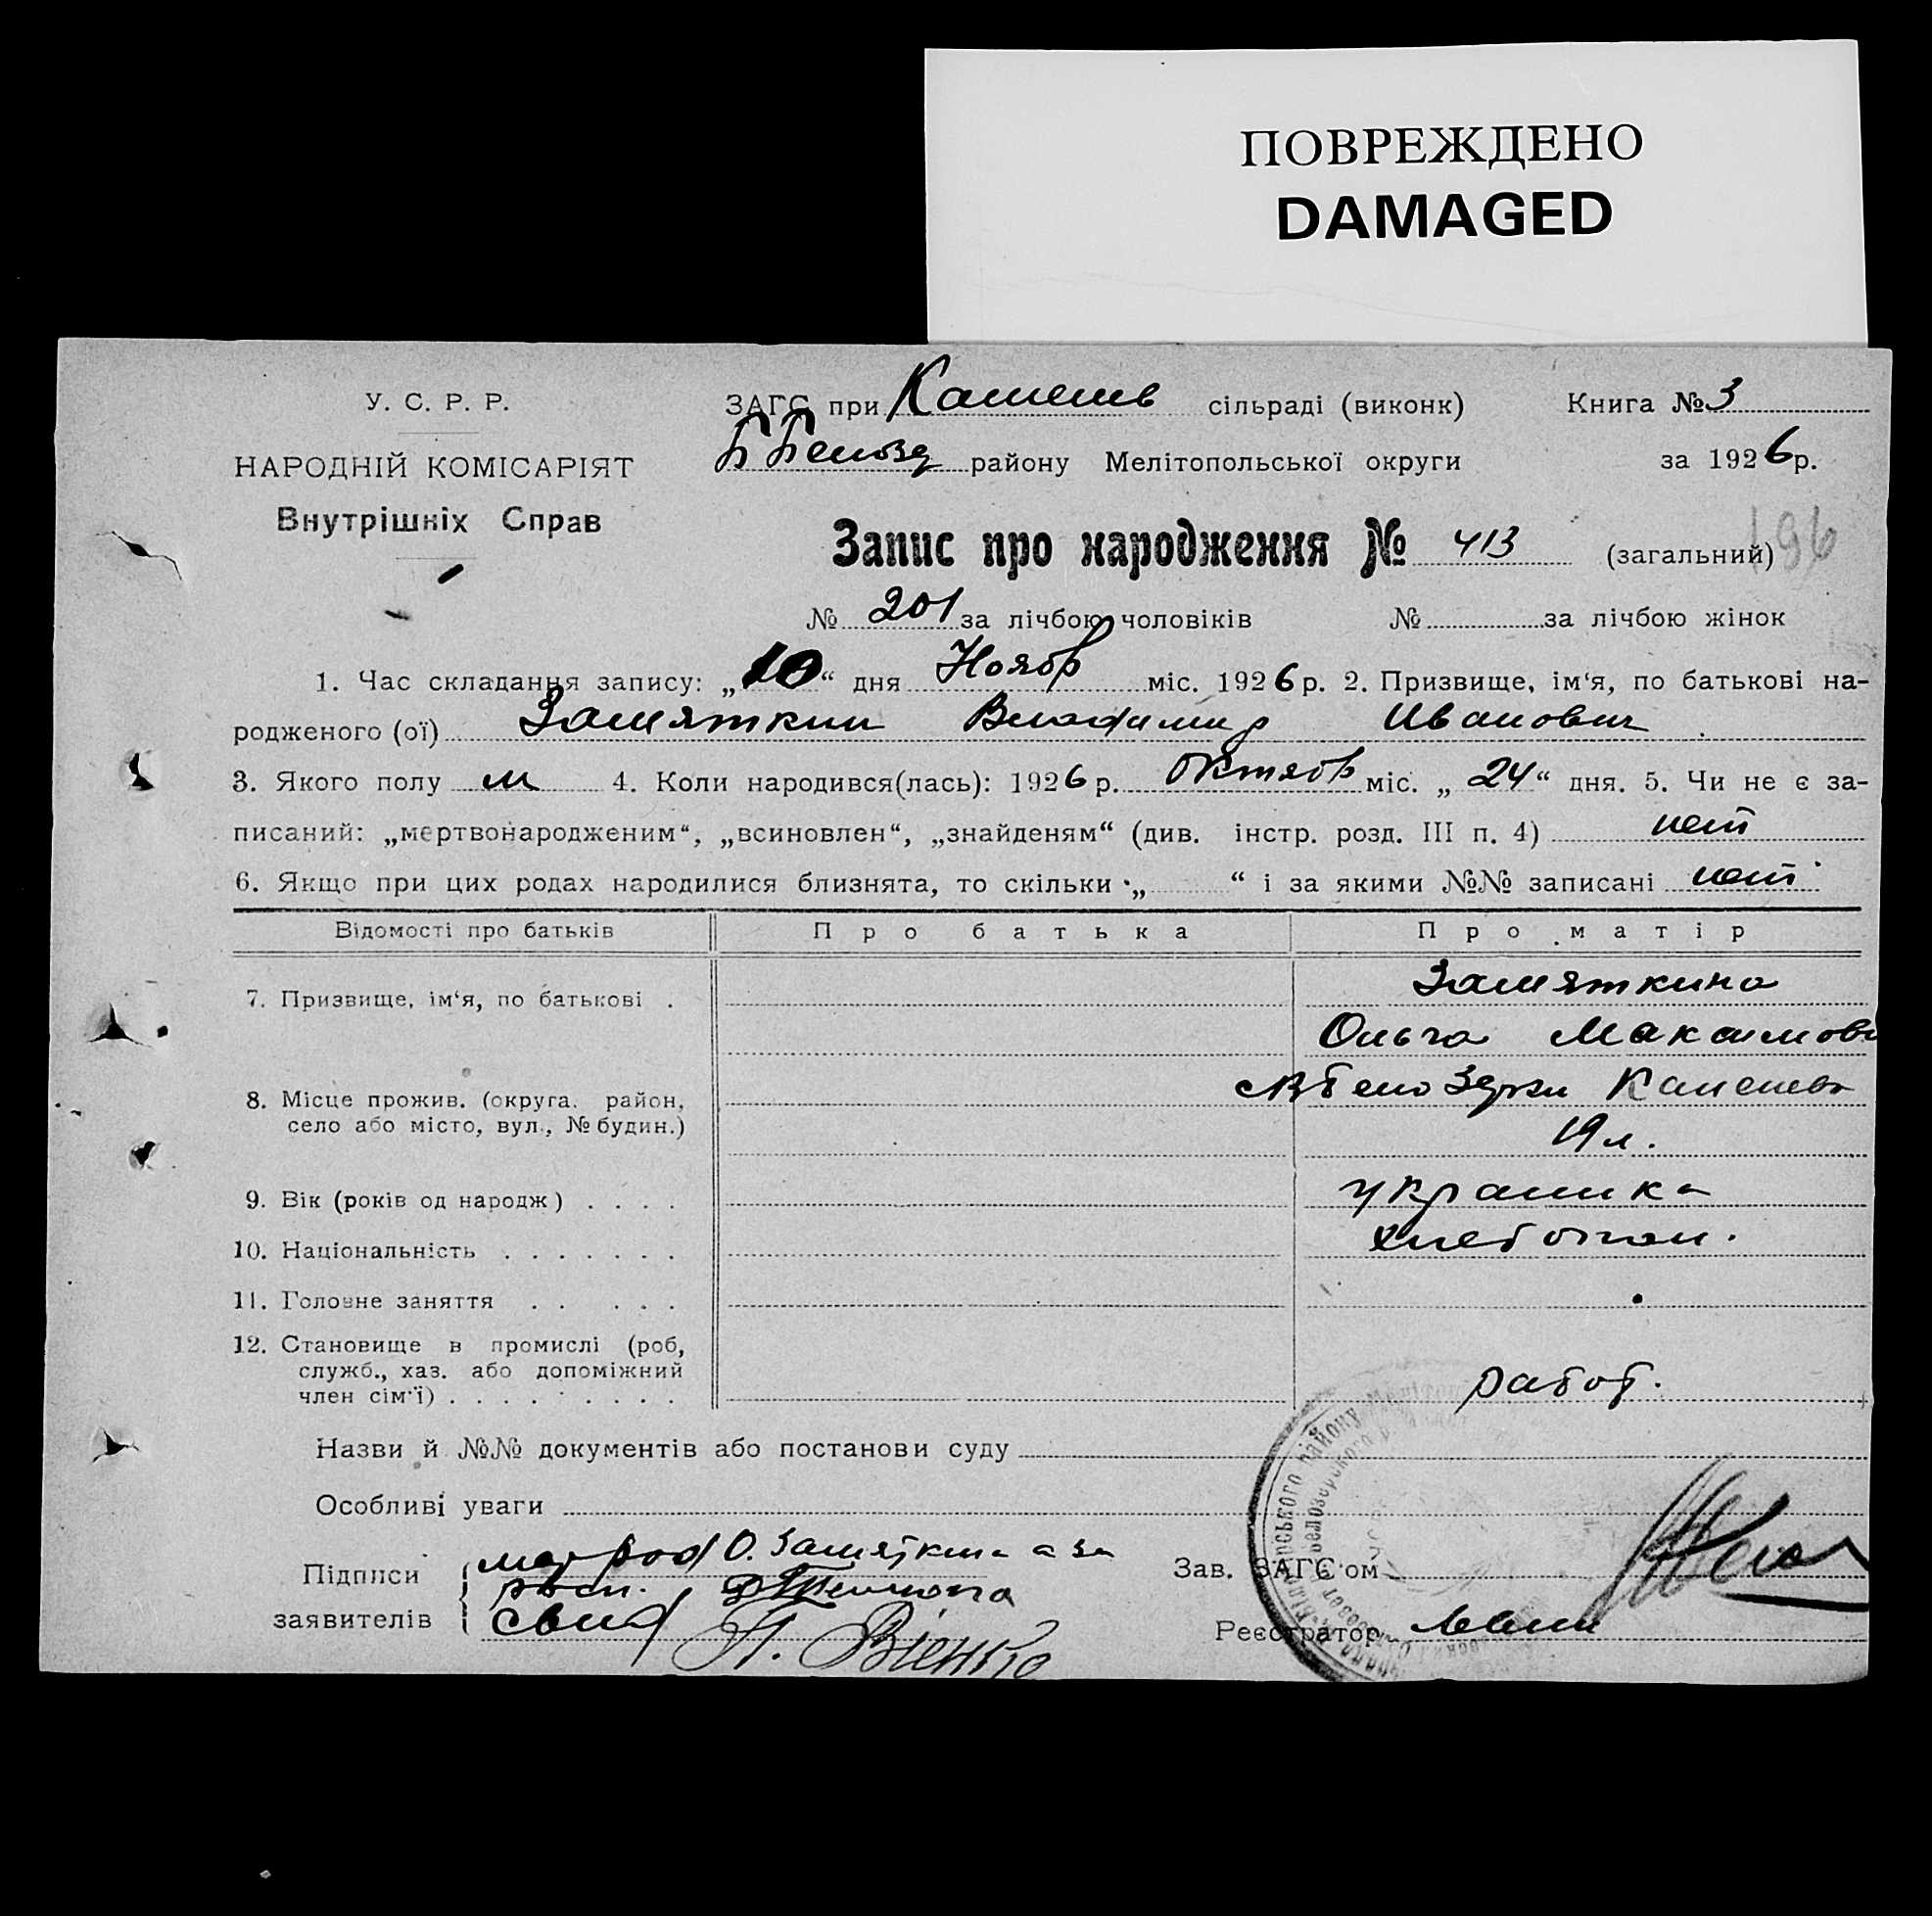 ПОВРЕЖДЕНО
DAMAGED
У. С. Р. Р.
НАРОДНІЙ КОМІСАРІЯТ
Внутрішніх Справ
ЗАГС при Каменв сільраді (виконк) Книга № 3
Б Белозер району Мелітопольської округи за 1926 р.
Запис про народження № 413 (загальний) 196
№ 201 за лічбою чоловіків № за лічбою жінок
1. Час складання запису: „10“ дня Ноябр міс. 1926 р. 2. Призвище, ім‘я, по батькові на-
родженого (ої) Замяткин Владимир Иванович
3. Якого полу м 4. Коли народився(лась): 1926 р. Октябр міс. „24“ дня. 5. Чи не є за-
писаний: „мертвонародженим“, „всиновлен“, „знайденям“ (див. інстр. розд. III п. 4) нет
6. Якщо при цих родах народилися близнята, то скільки „ “ і за якими №№ записані нет
Відомості про батьків Про батька Про матір
7. Призвище, ім‘я, по батькові . Замяткина
Ольга Максимовн
8. Місце прожив. (округа, район, село або місто, вул., № будин.) Белозерки Каменев
19 л.
9. Вік (років од народж) . . . . украинка
10. Національність . . . . . . . хлебопаш.
11. Головне заняття . . . . .
12. Становище в промислі (роб,
служб., хаз. або допоміжний
член сім‘ї) . . . . . . . . работ.
Назви й №№ документів або постанови суду
Особливі уваги
Підписи заявителів { О. Замяткина а за
Зав. ЗАГС‘ом
Реєстратор